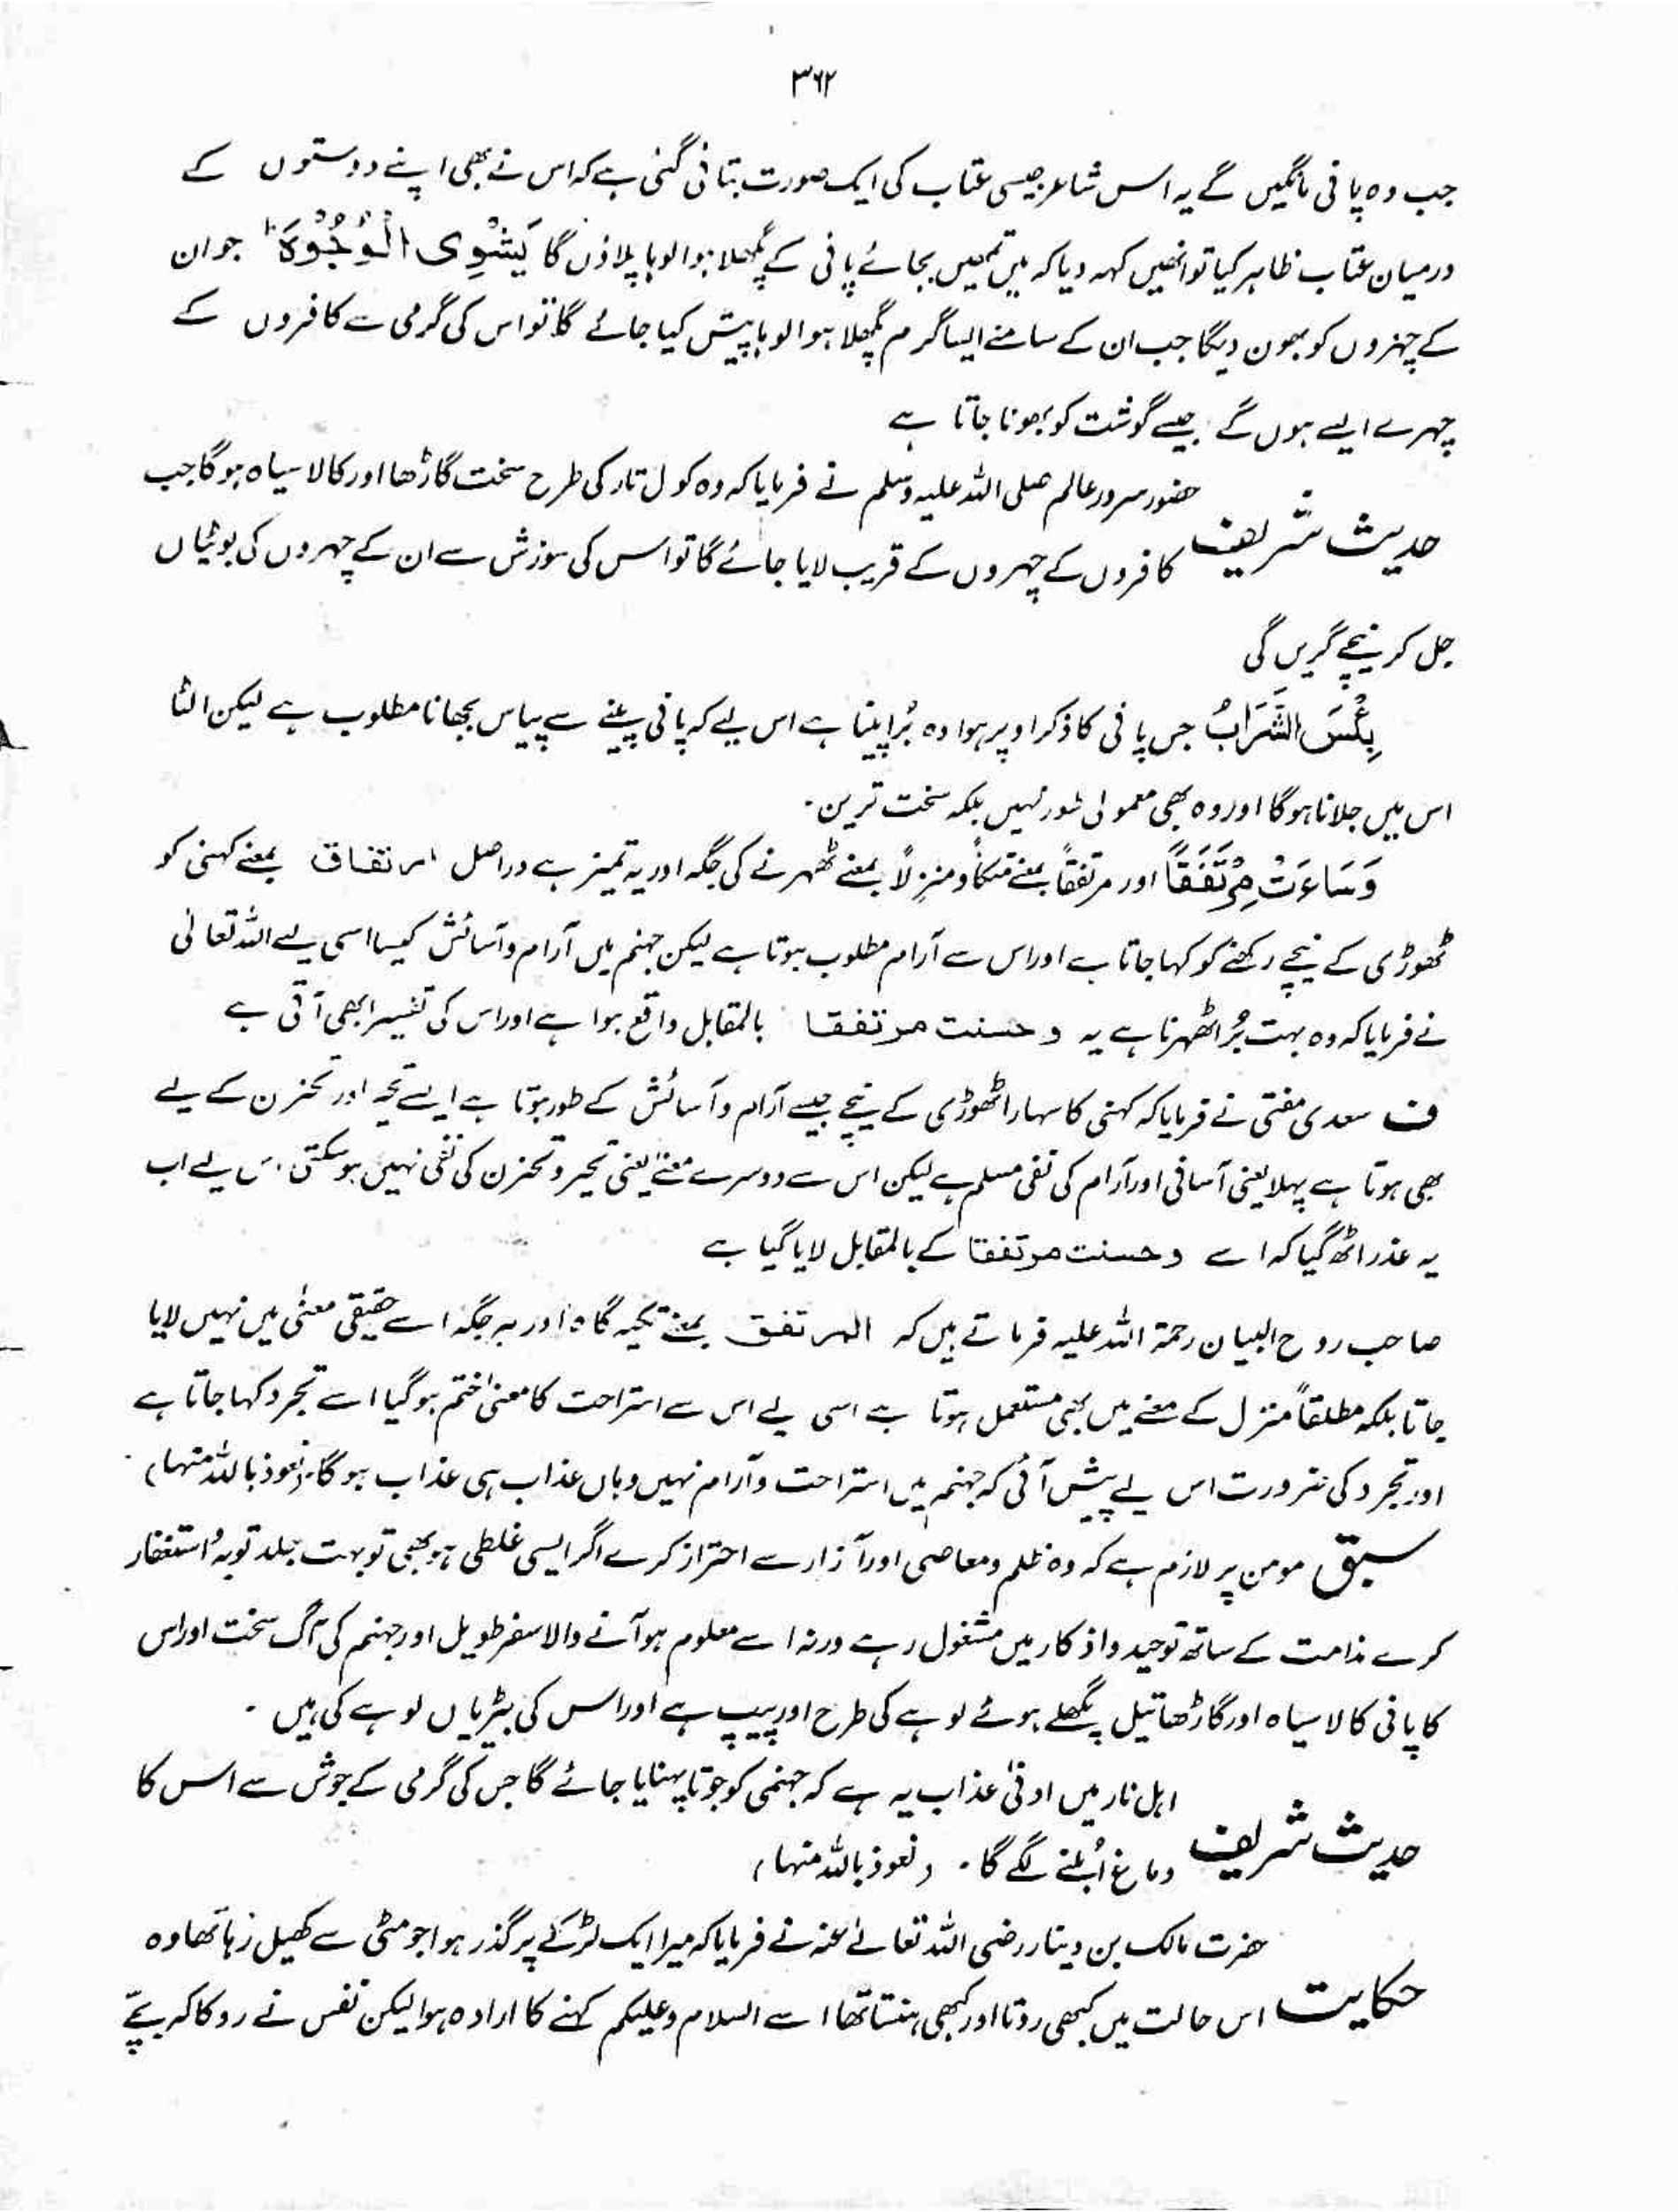 ۳۶۲
جب وہ پانی مانگیں گے یہ اس شاعر جیسی عتاب کی ایک صورت بتائی گئی ہے کہ اس نے بھی اپنے دوستوں کے
درمیان عتاب ظاہر کیا تو انھیں کہہ دیا کہ میں تمھیں بجائے پانی کے پگھلا ہوا لوہا پلاؤں گا یَشْوِی الْوُجُوْہَ ط جو ان
کے چہروں کو بھون دیگا جب ان کے سامنے ایسا گرم پگھلا ہوا لوہا پیش کیا جائے گا تو اس کی گرمی سے کافروں کے
چہرے ایسے ہوں گے جیسے گوشت کو بھونا جاتا ہے
حضور سرور عالم صلی اللہ علیہ وسلم نے فرمایا کہ وہ کول تار کی طرح سخت گاڑھا اور کالا سیاہ ہوگا جب
حدیث شریف کافروں کے چہروں کے قریب لایا جائے گا تو اس کی سوزش سے ان کے چہروں کی بوٹیاں
جل کر نیچے گریں گی
بِئْسَ الشَّرَابُ جس پانی کا ذکر اوپر ہوا وہ بُرا پینا ہے اس لیے کہ پانی پینے سے پیاس بجھانا مطلوب ہے لیکن الٹا
اس میں جلانا ہوگا اور وہ بھی معمولی طور نہیں بلکہ سخت ترین۔
وَسَاءَتْ مُرْتَفَقًا اور مرتفقاً بمعنے متکاً و منزلاً بمعنے ٹھہرنے کی جگہ اور یہ تمیز ہے دراصل ارتفاق بمعنے کہنی کو
ٹھوڑی کے نیچے رکھنے کو کہا جاتا ہے اور اس سے آرام مطلوب ہوتا ہے لیکن جہنم میں آرام و آسائش کیسا اسی لیے اللہ تعالیٰ
نے فرمایا کہ وہ بہت بُرا ٹھہرنا ہے یہ وحسنت مرتفقا بالمقابل واقع ہوا ہے اور اس کی تفسیر ابھی آتی ہے
ف سعدی مفتی نے فرمایا کہ کہنی کا سہارا ٹھوڑی کے نیچے جیسے آرام و آسائش کے طور ہوتا ہے ایسے تحیر اور تحزن کے لیے
بھی ہوتا ہے پہلا یعنی آسانی اور آرام کی نفی مسلم ہے لیکن اس سے دوسرے معنے یعنی تحیر و تحزن کی نفی نہیں ہو سکتی اس لیے اب
یہ عذر اٹھ گیا کہ اسے وحسنت مرتفقا کے بالمقابل لایا گیا ہے
صاحب روح البیان رحمۃ اللہ علیہ فرماتے ہیں کہ المرتفق بمعنے تکیہ گاہ اور ہر جگہ اسے حقیقی معنٰی میں نہیں لایا
جاتا بلکہ مطلقاً منزل کے معنے میں بھی مستعمل ہوتا ہے اسی لیے اس سے استراحت کا معنیٰ ختم ہو گیا اسے تجرد کہا جاتا ہے
اور تجرد کی ضرورت اس لیے پیش آئی کہ جہنم میں استراحت و آرام نہیں وہاں عذاب ہی عذاب ہوگا۔ (نعوذ باللہ منہا)
سبق مومن پر لازم ہے کہ وہ ظلم و معاصی اور آزار سے احتراز کرے اگر ایسی غلطی ہو بھی تو بہت جلد توبہ و استغفار
کرے ندامت کے ساتھ توحید و اذکار میں مشغول رہے ورنہ اسے معلوم ہو آنے والا سفر طویل اور جہنم کی آگ سخت اور اس
کا پانی کالا سیاہ اور گاڑھا تیل پگھلے ہوئے لوہے کی طرح اور پیپ ہے اور اس کی بیڑیاں لوہے کی ہیں۔
اہل نار میں ادنیٰ عذاب یہ ہے کہ جہنمی کو جوتا پہنایا جائے گا جس کی گرمی کے جوش سے اس کا
حدیث شریف دماغ اُبلنے لگے گا۔ (نعوذ باللہ منہا)
حضرت مالک بن دینار رضی اللہ تعالےٰ عنہ نے فرمایا کہ میرا ایک لڑکے پر گذر ہوا جو مٹی سے کھیل رہا تھا وہ
حکایت اس حالت میں کبھی روتا اور کبھی ہنستا تھا اسے السلام وعلیکم کہنے کا ارادہ ہوا لیکن نفس نے روکا کہ بچّے